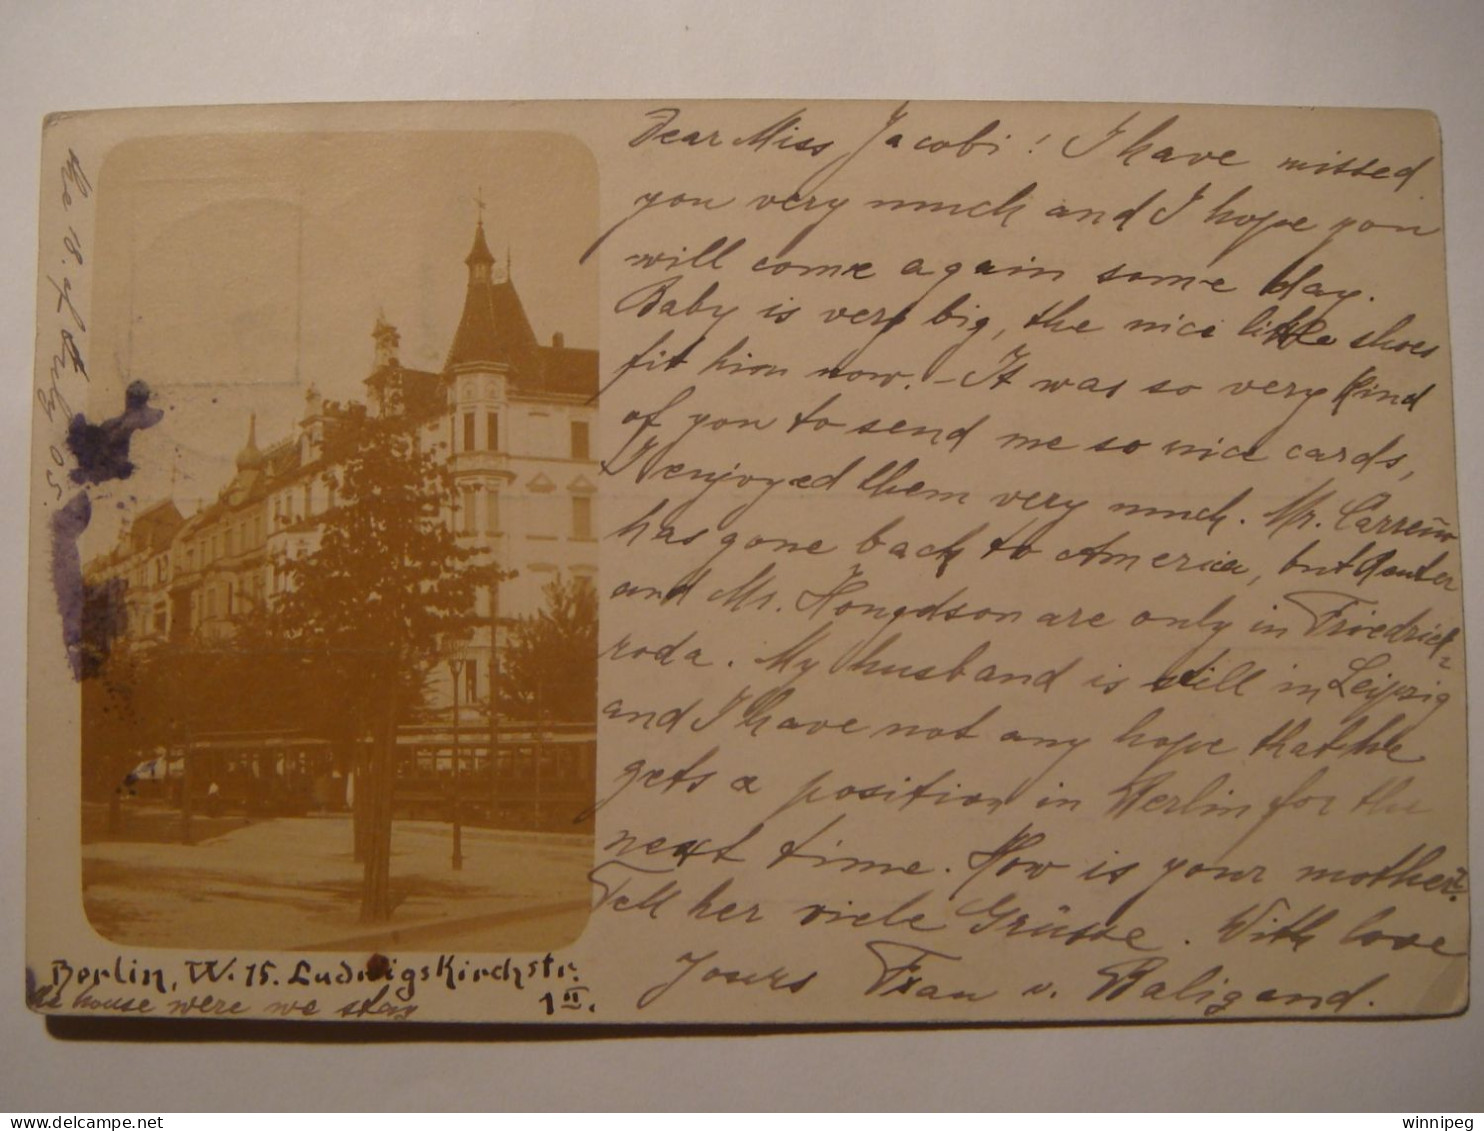 the 18. of July 05.
Dear Miss Jacobi! I have missed
you very much and I hope you
will come again some day.
Baby is very big, the nice little shoes
fit him now. - It was so very kind
of you to send me so nice cards,
I enjoyed them very much. Mr. Carreño
has gone back to America, but
and Mr. are only in Friedrich=
roda. My husband is still in Leipzig
and I have not any hope that he
gets a position in Berlin for the
next time. How is your mother?
Tell her viele Grüsse. With love
Yours Frau v. Waligand.
Berlin, W. 15. Ludwigskirchstr.
1 II.
house were we stay
winnipeg